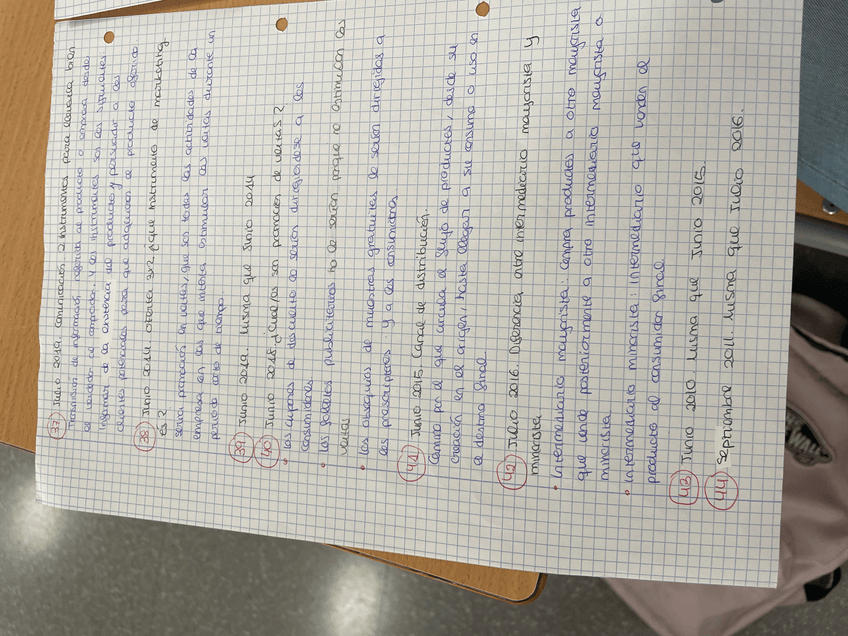 37 Julio 2019. Comunicación 2 instrumentos para llevarla bien
Transmisión de información, referida al producto o empresa desde
el vendedor al comprador. Y en instrumentos son los siguientes
Informar de la existencia del producto y persuadir a los
clientes potenciales para que adquieran el producto ofrecido.
38 Junio 2014 oferta 3x2, ¿que instrumento de marketing
es?
sería promoción en ventas, que son todas las actividades de la
empresa en las que intenta estimular las ventas durante un
periodo corto de tiempo.
39 Junio 2019. Misma que Junio 2014
40 Junio 2018. ¿Cuáles son promoción de ventas?
• Los cupones de descuento lo serían dirigiéndose a los
consumidores
• Los folletos publicitarios no lo serían porque no estimulan las
ventas
• Los obsequios de muestras gratuitas lo serían dirigidos a
los prescriptores y a los consumidores
41 Junio 2015. Canal de distribución.
Camino por el que circula el flujo de productos, desde su
creación en el origen, hasta llegar a su consumo o uso en
el destino final
42 Julio 2016. Diferencia entre intermediario mayorista y
minorista
• Intermediario mayorista: Compra productos a otro mayorista
que vende posteriormente a otro intermediario mayorista o
minorista
• Intermediario minorista: intermediario que venden el
producto al consumidor final.
43 Junio 2010 Misma que Junio 2015.
44 Septiembre 2011. Misma que Julio 2016.